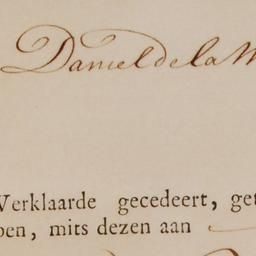 Daniel de la
Verklaarde gecedeert, get
pen, mits dezen aan